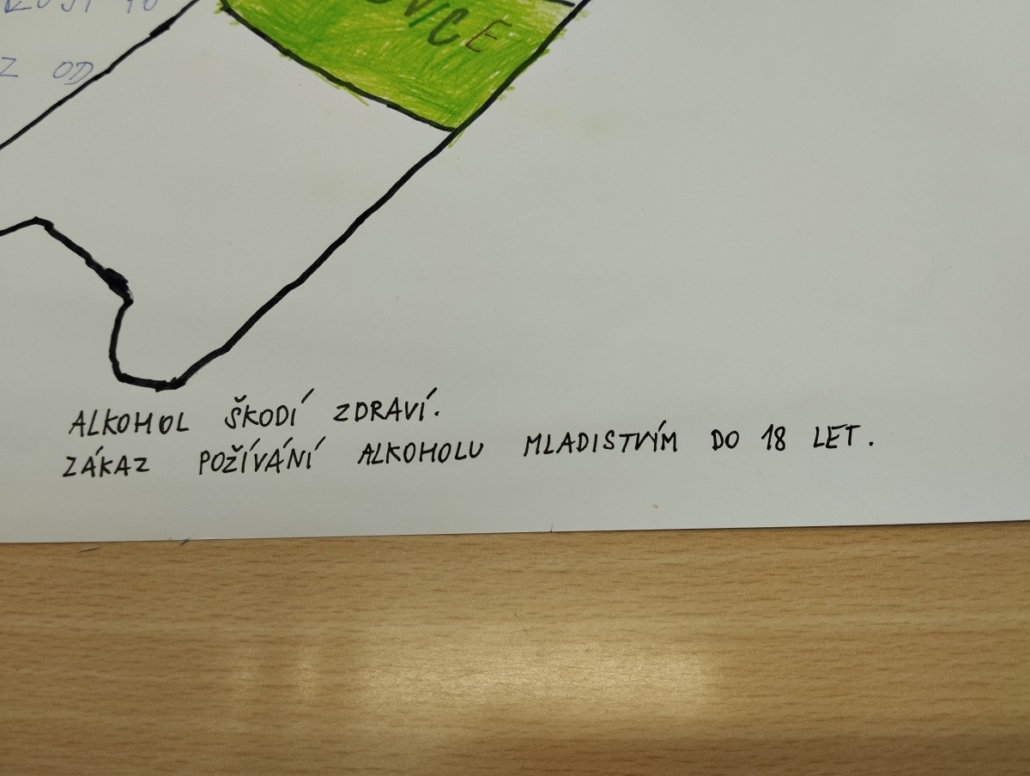 OD
ALKOHOL ŠKODÍ ZDRAVÍ.
ZÁKAZ POŽÍVÁNÍ ALKOHOLU MLADISTVÍM DO 18 LET.